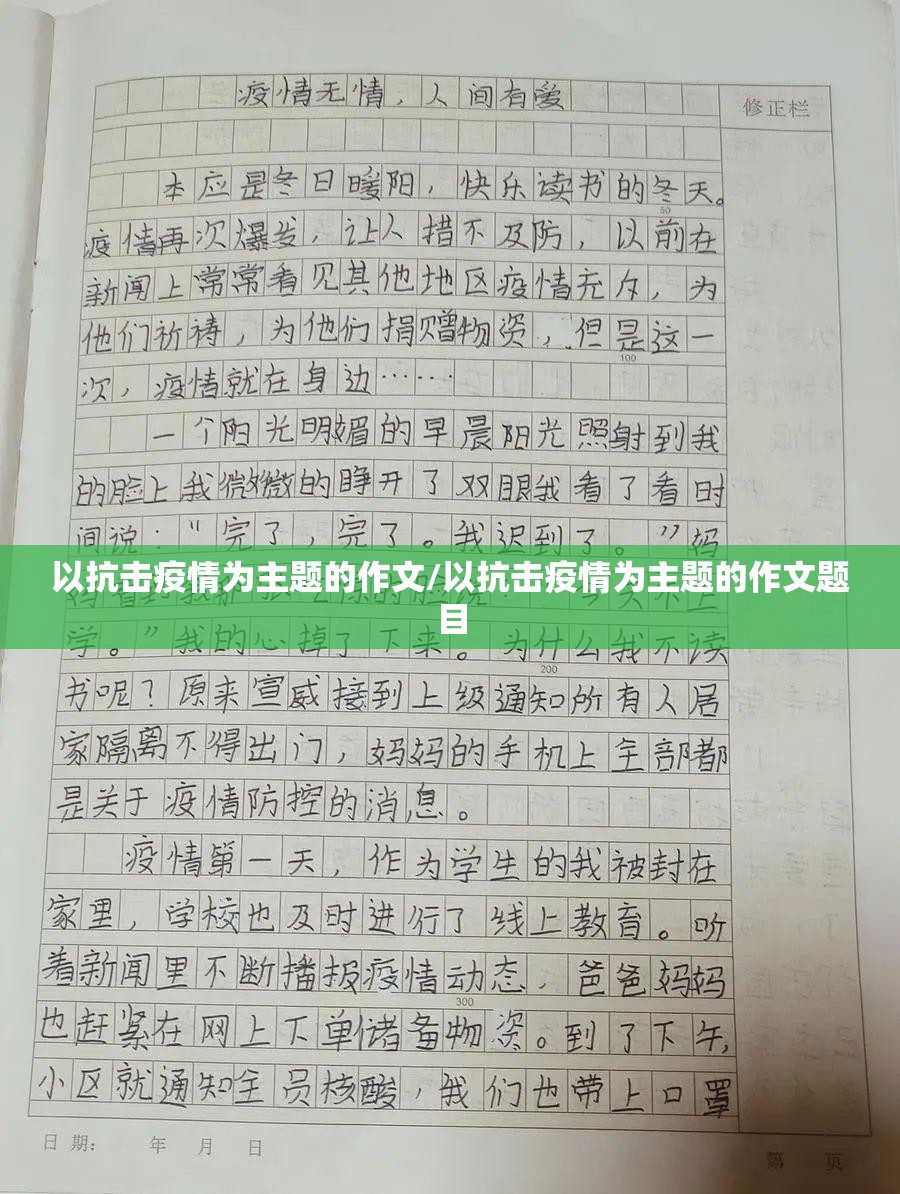 疫情无情，人间有爱
修正栏
本应是冬日暖阳，快乐读书的冬天。
50
疫情再次爆发，让人措不及防，以前在
新闻上常常看见其他地区疫情充斥，为
他们祈祷，为他们捐赠物资，但是这一
100
次，疫情就在身边……
一个阳光明媚的早晨阳光照射到我
的脸上我微微的睁开了双眼我看了看时
间说：“完了，完了。我迟到了。”妈
以抗击疫情为主题的作文/以抗击疫情为主题的作文题
目
学。”我的心掉了下来。为什么我不读
200
书呢？原来宣威接到上级通知所有人居
家隔离不得出门，妈妈的手机上全部都
是关于疫情防控的消息。
疫情第一天，作为学生的我被封在
家里，学校也及时进行了线上教育。听
着新闻里不断播报疫情动态，爸爸妈妈
300
也赶紧在网上下单储备物资。到了下午，
小区就通知全员核酸，我们也带上口罩
日期： 年 月 日
第 页